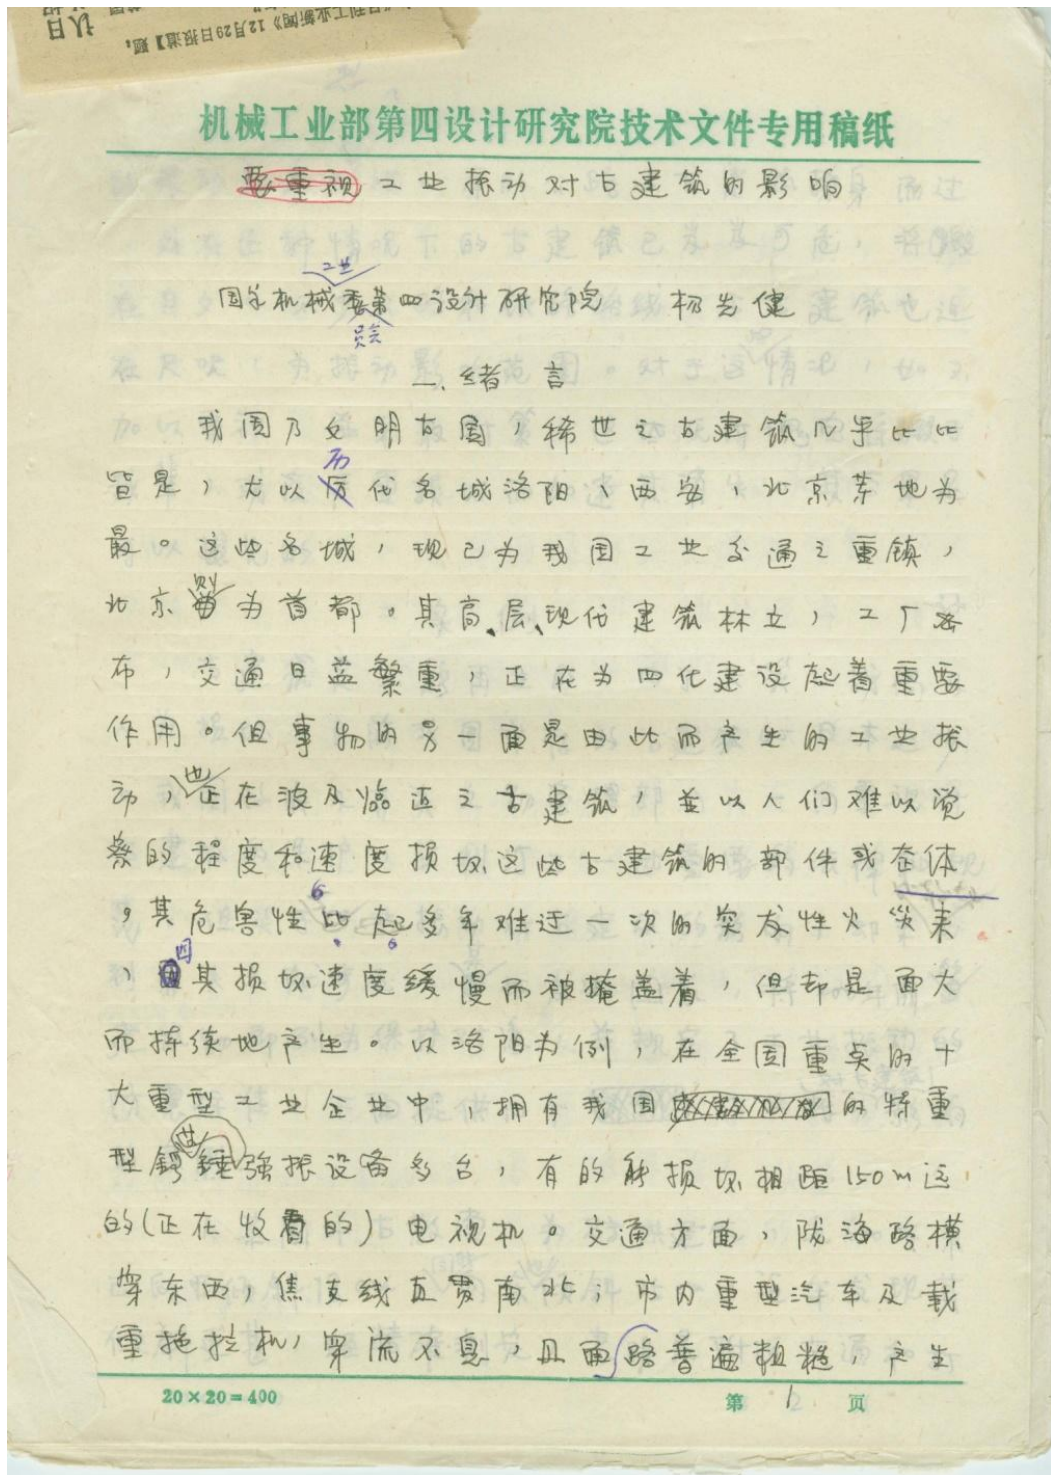 《日刊工业新闻》12月29日报道】题:
认日
机械工业部第四设计研究院技术文件专用稿纸
要重视工业振动对古建筑的影响
工业
国家机械委第四设计研究院 杨先健
员会
一、绪言
我国乃文明古国,稀世之古建筑几乎比比
历
皆是,尤以历代名城洛阳、西安,北京等地为
最。这些名城,现已为我国工业交通之重镇,
则
北京为首都。其高、层、现代建筑林立,工厂密
布,交通日益繁重,正在为四化建设起着重要
作用。但事物的另一面是由此而产生的工业振
也
动,正在波及临近之古建筑,並以人们难以觉
察的程度和速度损坏这些古建筑的部件或整体
,其危害性比起多年难迂一次的突发性火灾来
因
,其损坏速度缓慢而被掩盖着,但却是面大
而持续地产生。以洛阳为例,在全国重点的十
大重型工业企业中,拥有我国的特重
型锻锤强振设备多台,有的能损坏相距150m远
的(正在收看的)电视机。交通方面,陇海路横
穿东西,焦支线直贯南北;市内重型汽车及载
重拖拉机,穿流不息,且面路普遍粗糙,产生
20×20=400
第 1 页